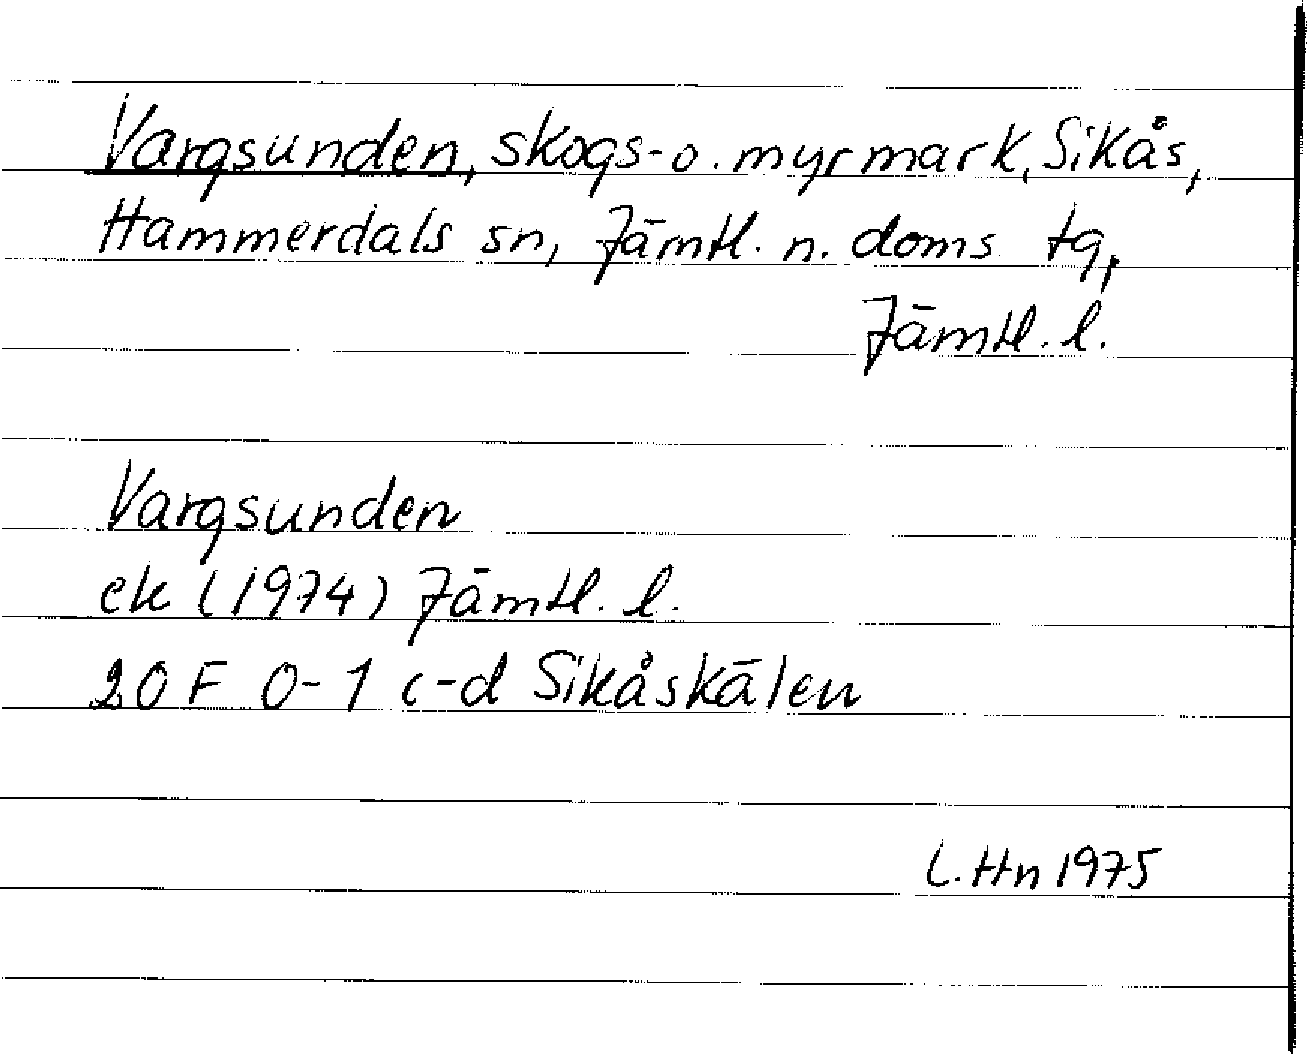 Vargsunden, skogs- o. myrmark, Sikås,
Hammerdals sn, Jämtl. n. doms tg,
Jämtl. l.
Vargsunden
ek (1974) Jämtl. l.
20 F 0-1 c-d Sikåskälen
L. Hn 1975